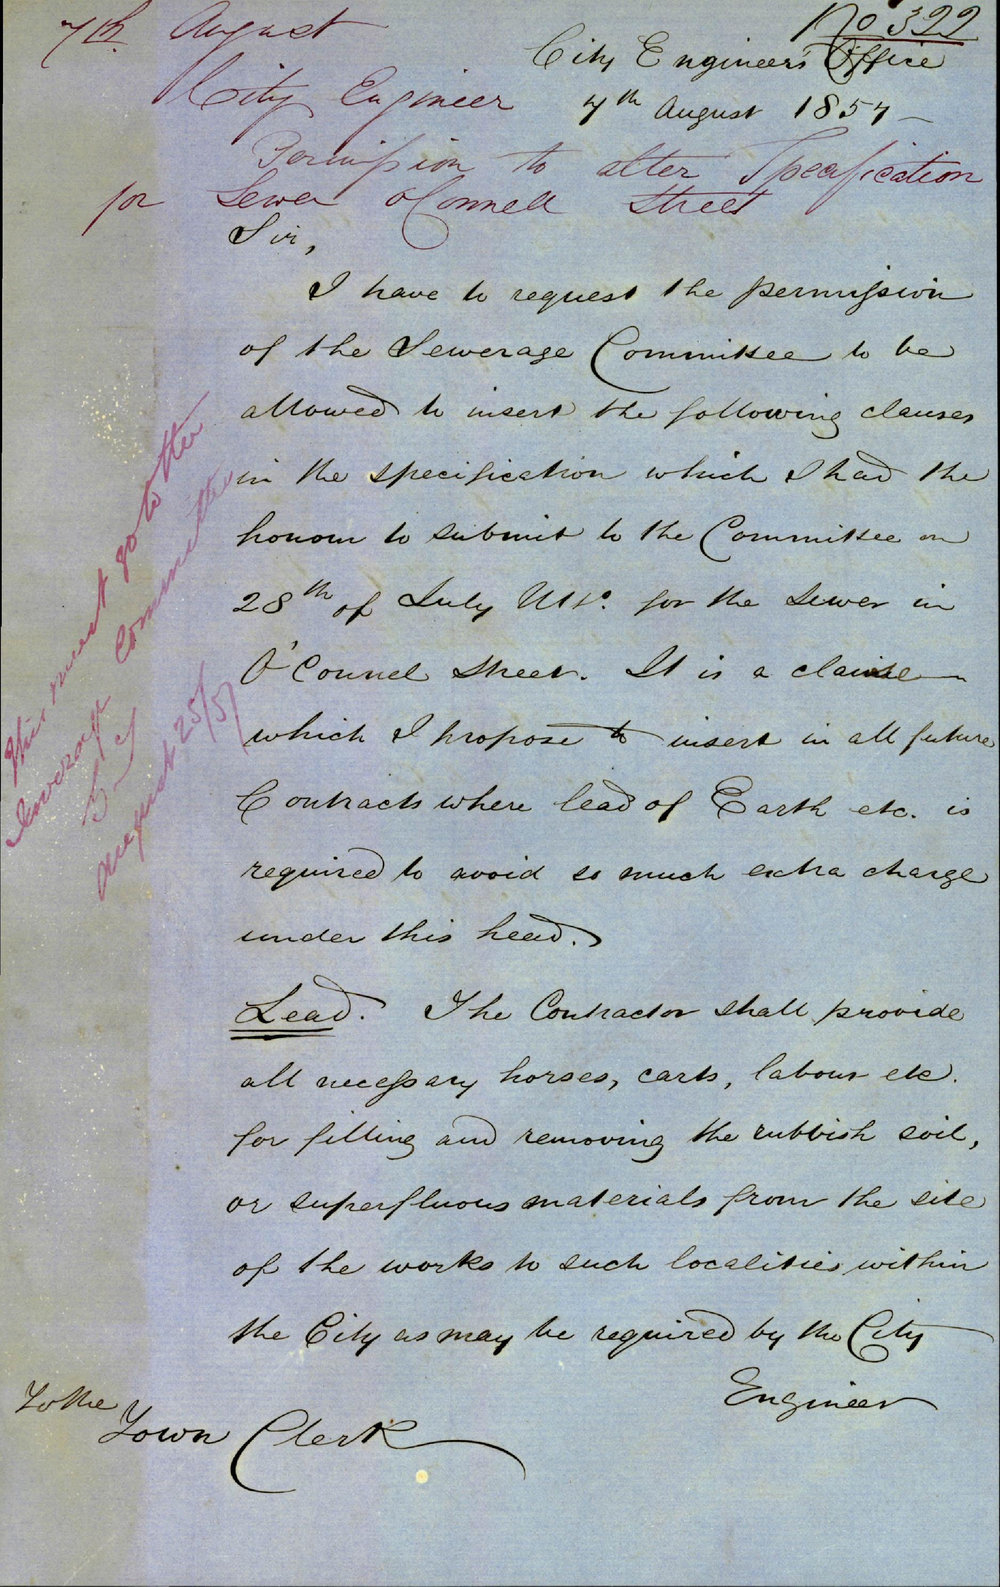 No 322
7th August
City Engineer's Office
City Engineer
7th August 1857
Permission to alter Specification
for Sewer oConnell Street
Sir,
I have to request the permission
of the Sewerage Committee to be
allowed to insert the following clauses
in the specification which I had the
honour to submit to the Committee on
28th of July Ulto. for the Sewer in
O'Connel Street. It is a clause
which I propose to insert in all future
Contracts where lead of Earth etc. is
required to avoid so much extra charge
under this head.
Lead. The Contractor shall provide
all necessary horses, carts, labour etc.
for filling and removing the rubbish soil,
or superfluous materials from the site
of the works to such localities within
the City as may be required by the City
Engineer
To the
Town Clerk
This must go to the
Sewerage Committee
August 25/57